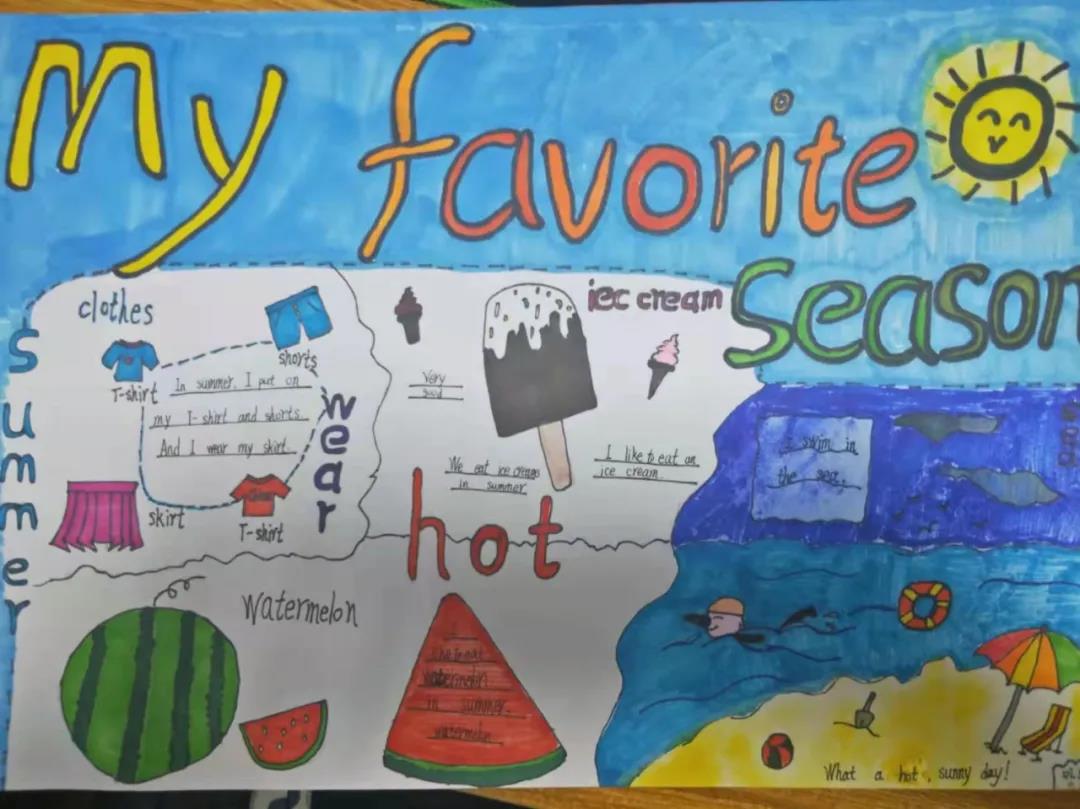 My favorite
season
summer
clothes
shorts
T-shirt
In summer, I put on
my T-shirt and shorts.
And I wear my skirt.
wear
skirt
T-shirt
iec cream
Very
good
We eat ice creams
in summer
I like to eat an
ice cream.
hot
I swim in
the sea.
Watermelon
I
like to eat
watermelon
in summer.
watermelon
What a hot, sunny day!